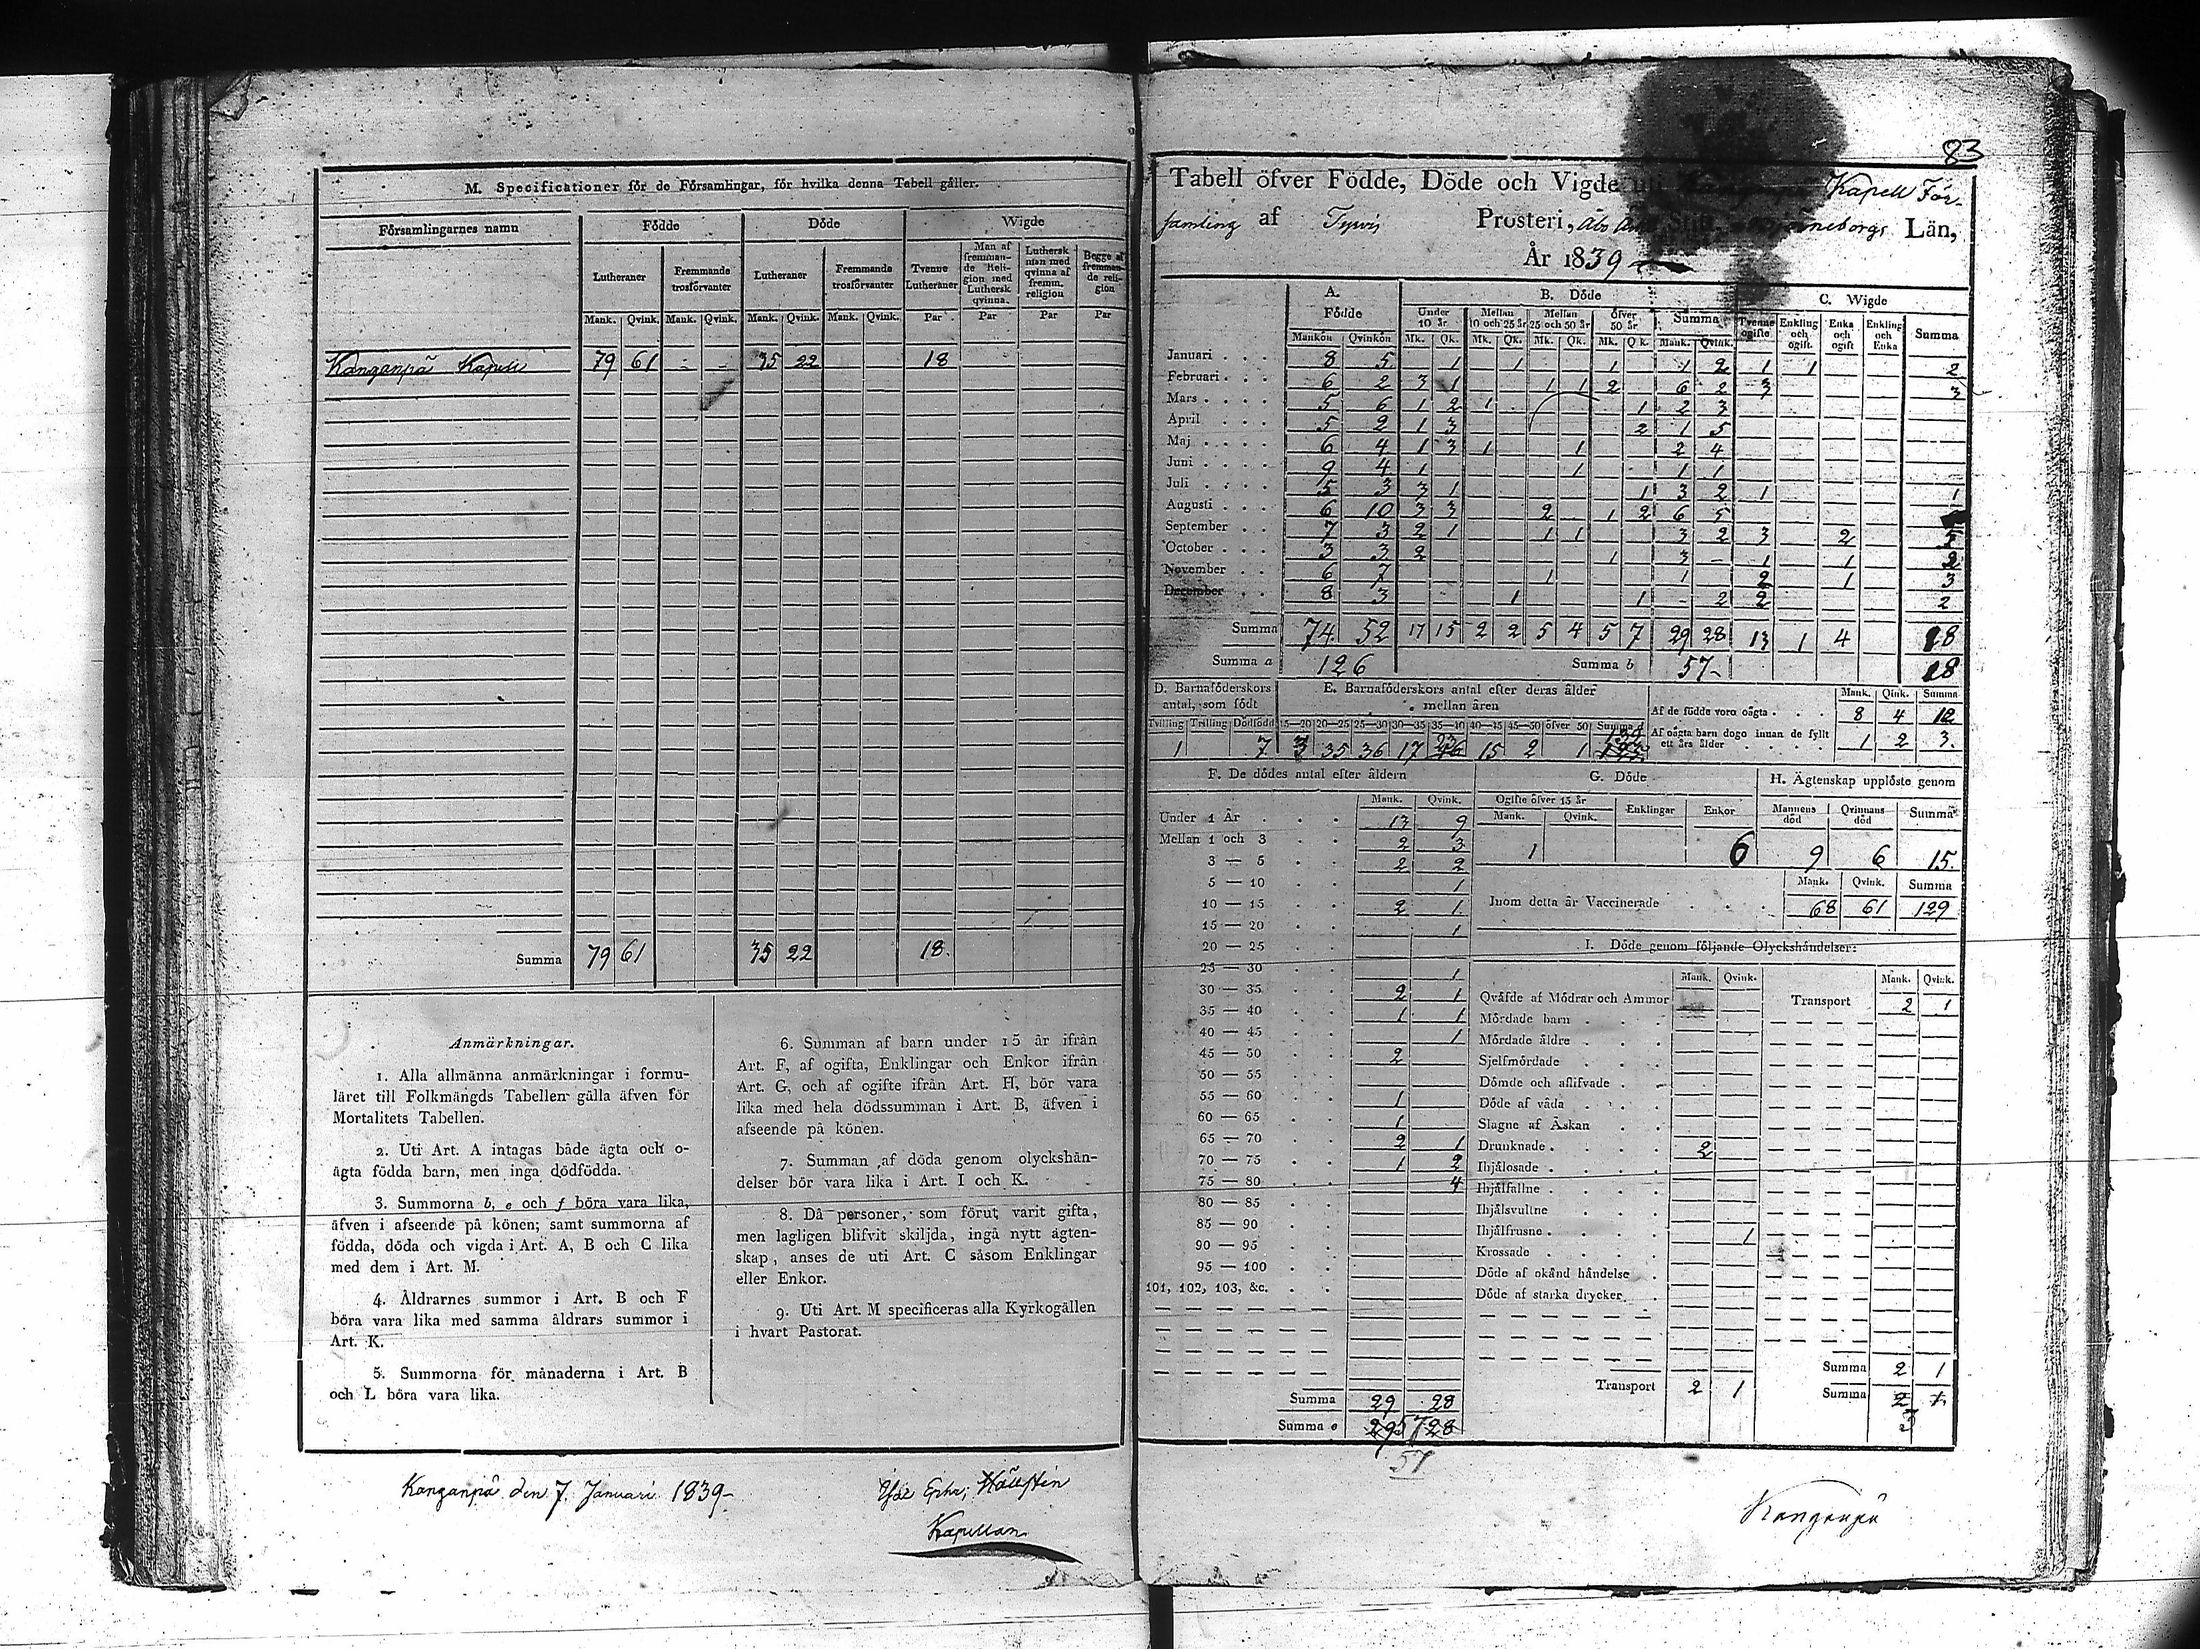 M. Specificationer för de Församlingar, för hvilka denna Tabell gäller.
Församlingarnes namn Födde Döde Wigde
Lutheraner Fremmande trosförvanter Lutheraner Fremmande trosförvanter Tvenne Lutheraner Man af fremmande Religion med Luthersk qvinna. Luthersk man med qvinna af fremm. religion Begge af fremmande religion
Mank. Qvink. Mank. Qvink. Mank. Qvink. Mank. Qvink. Par Par Par Par
Kanganpä Kapell 79 61 - - 35 22 18
Summa 79 61 35 22 18.
Anmärkningar.
1. Alla allmänna anmärkningar i formu-
läret till Folkmängds Tabellen gälla äfven för
Mortalitets Tabellen.
2. Uti Art. A intagas både ägta och o-
ägta födda barn, men inga dödfödda.
3. Summorna b, e och f böra vara lika,
äfven i afseende på könen; samt summorna af
födda, döda och vigda i Art. A, B och C lika
med dem i Art. M.
4. Åldrarnes summor i Art. B och F
böra vara lika med samma åldrars summor i
Art. K.
5. Summorna för månaderna i Art. B
och L böra vara lika.
6. Summan af barn under 15 år ifrån
Art. F, af ogifta, Enklingar och Enkor ifrån
Art. G, och af ogifte ifrån Art. H, bör vara
lika med hela dödssumman i Art. B, äfven i
afseende på könen.
7. Summan af döda genom olyckshän-
delser bör vara lika i Art. I och K.
8. Då personer, som förut varit gifta,
men lagligen blifvit skiljda, ingå nytt ägten-
skap, anses de uti Art. C såsom Enklingar
eller Enkor.
9. Uti Art. M specificeras alla Kyrkogällen
i hvart Pastorat.
Kanganpä den 7 Januari 1839-
Hällstén
Kapellan
83
Tabell öfver Födde, Döde och Vigde uti Kapell För-
samling af Tyrvis Prosteri, Åbo Stift, Björneborgs Län,
År 1839
A. Födde B. Döde C. Wigde
Under 10 år Mellan 10 och 25 år Mellan 25 och 50 år öfver 50 år Summa Tvenne ogifte Enkling och ogift. Enka och ogift Enkling och Enka Summa
Mankön Qvinkön Mk. Qk. Mk. Qk. Mk. Qk. Mk. Qk. Mank. Qvink.
Januari 8 5 1 1 1 1 2 1 1 2
Februari 6 2 3 1 1 1 2 6 2 3 3
Mars 5 6 1 2 1 1 2 3
April 5 2 1 3 2 1 5
Maj 6 4 1 3 1 1 2 4
Juni 9 4 1 1 1 1
Juli 5 3 3 1 1 3 2 1 1
Augusti 6 10 3 3 2 1 2 6 5
September 7 3 2 1 1 1 3 2 3 2 5
October 3 3 2 1 3 - 1 1 2
November 6 7 1 1 2 1 3
December 8 3 1 1 - 2 2 2
Summa 74 52 17 15 2 2 5 4 5 7 29 28 13 1 4 18
Summa a 126 Summa b 57- 18
D. Barnaföderskors antal, som födt
Tvilling Trilling Dödfödd
1 7
E. Barnaföderskors antal efter deras ålder mellan åren
15—20 20—25 25—30 30—35 35—40 40—45 45—50 öfver 50 Summa d
3 35 36 17 23 15 2 1
Mank. Qink. Summa
Af de födde voro oägta 8 4 12
Af oägta barn dogo innan de fyllt ett års ålder 1 2 3.
F. De dödes antal efter åldern
Mank. Qvink.
Under 1 År 13 9
Mellan 1 och 3 2 3
3 — 5 2 2
5 — 10 1
10 — 15 2 1
15 — 20 1
20 — 25
25 — 30 1
30 — 35 2 1
35 — 40 1 1
40 — 45 1
45 — 50 2
50 — 55
55 — 60 1
60 — 65 1
65 — 70 2 1
70 — 75 1 2
75 — 80 4
80 — 85
85 — 90
90 — 95
95 — 100
101, 102, 103, &c.
Summa 29 28
Summa e 29 57 28
57
G. Döde
Ogifte öfver 15 år Enklingar Enkor
Mank. Qvink.
1 6
H. Ägtenskap upplöste genom
Mannens död Qvinnans död Summa
9 6 15.
Mank. Qvink. Summa
Inom detta år Vaccinerade 68 61 129
I. Döde genom följande Olyckshändelser:
Mank. Qvink. Mank. Qvink.
Qväfde af Mödrar och Ammor Transport 2 1
Mördade barn
Mördade äldre
Sjelfmördade
Dömde och aflifvade
Döde af våda
Slagne af Åskan
Drunknade 2
Ihjälosade
Ihjälfallne
Ihjälsvultne
Ihjälfrusne 1
Krossade
Döde af okänd händelse
Döde af starka drycker
Transport 2 1
Summa 2 1
Summa 2 1
3
Kanganpä